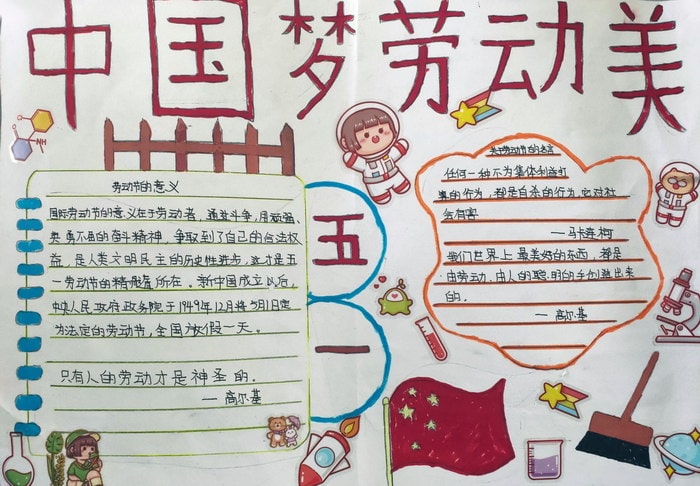 中国梦劳动美
NH
劳动节的意义
国际劳动节的意义在于劳动者，通过斗争，用顽强、
英勇不屈的奋斗精神，争取到了自己的合法权
益，是人类文明民主的历史性进步，这才是五
一劳动节的精髓所在。新中国成立以后，
中央人民政府政务院于1949年12月将5月1日定
为法定的劳动节，全国放假一天。
只有人的劳动才是神圣的。
— 高尔基
五
一
关于劳动节的名言
任何一种不为集体利益打
算的行为，都是自杀的行为，它对社
会有害
— 马卡连柯
我们世界上最美好的东西，都是
由劳动、由人的聪明的手创造出来
的。
— 高尔基